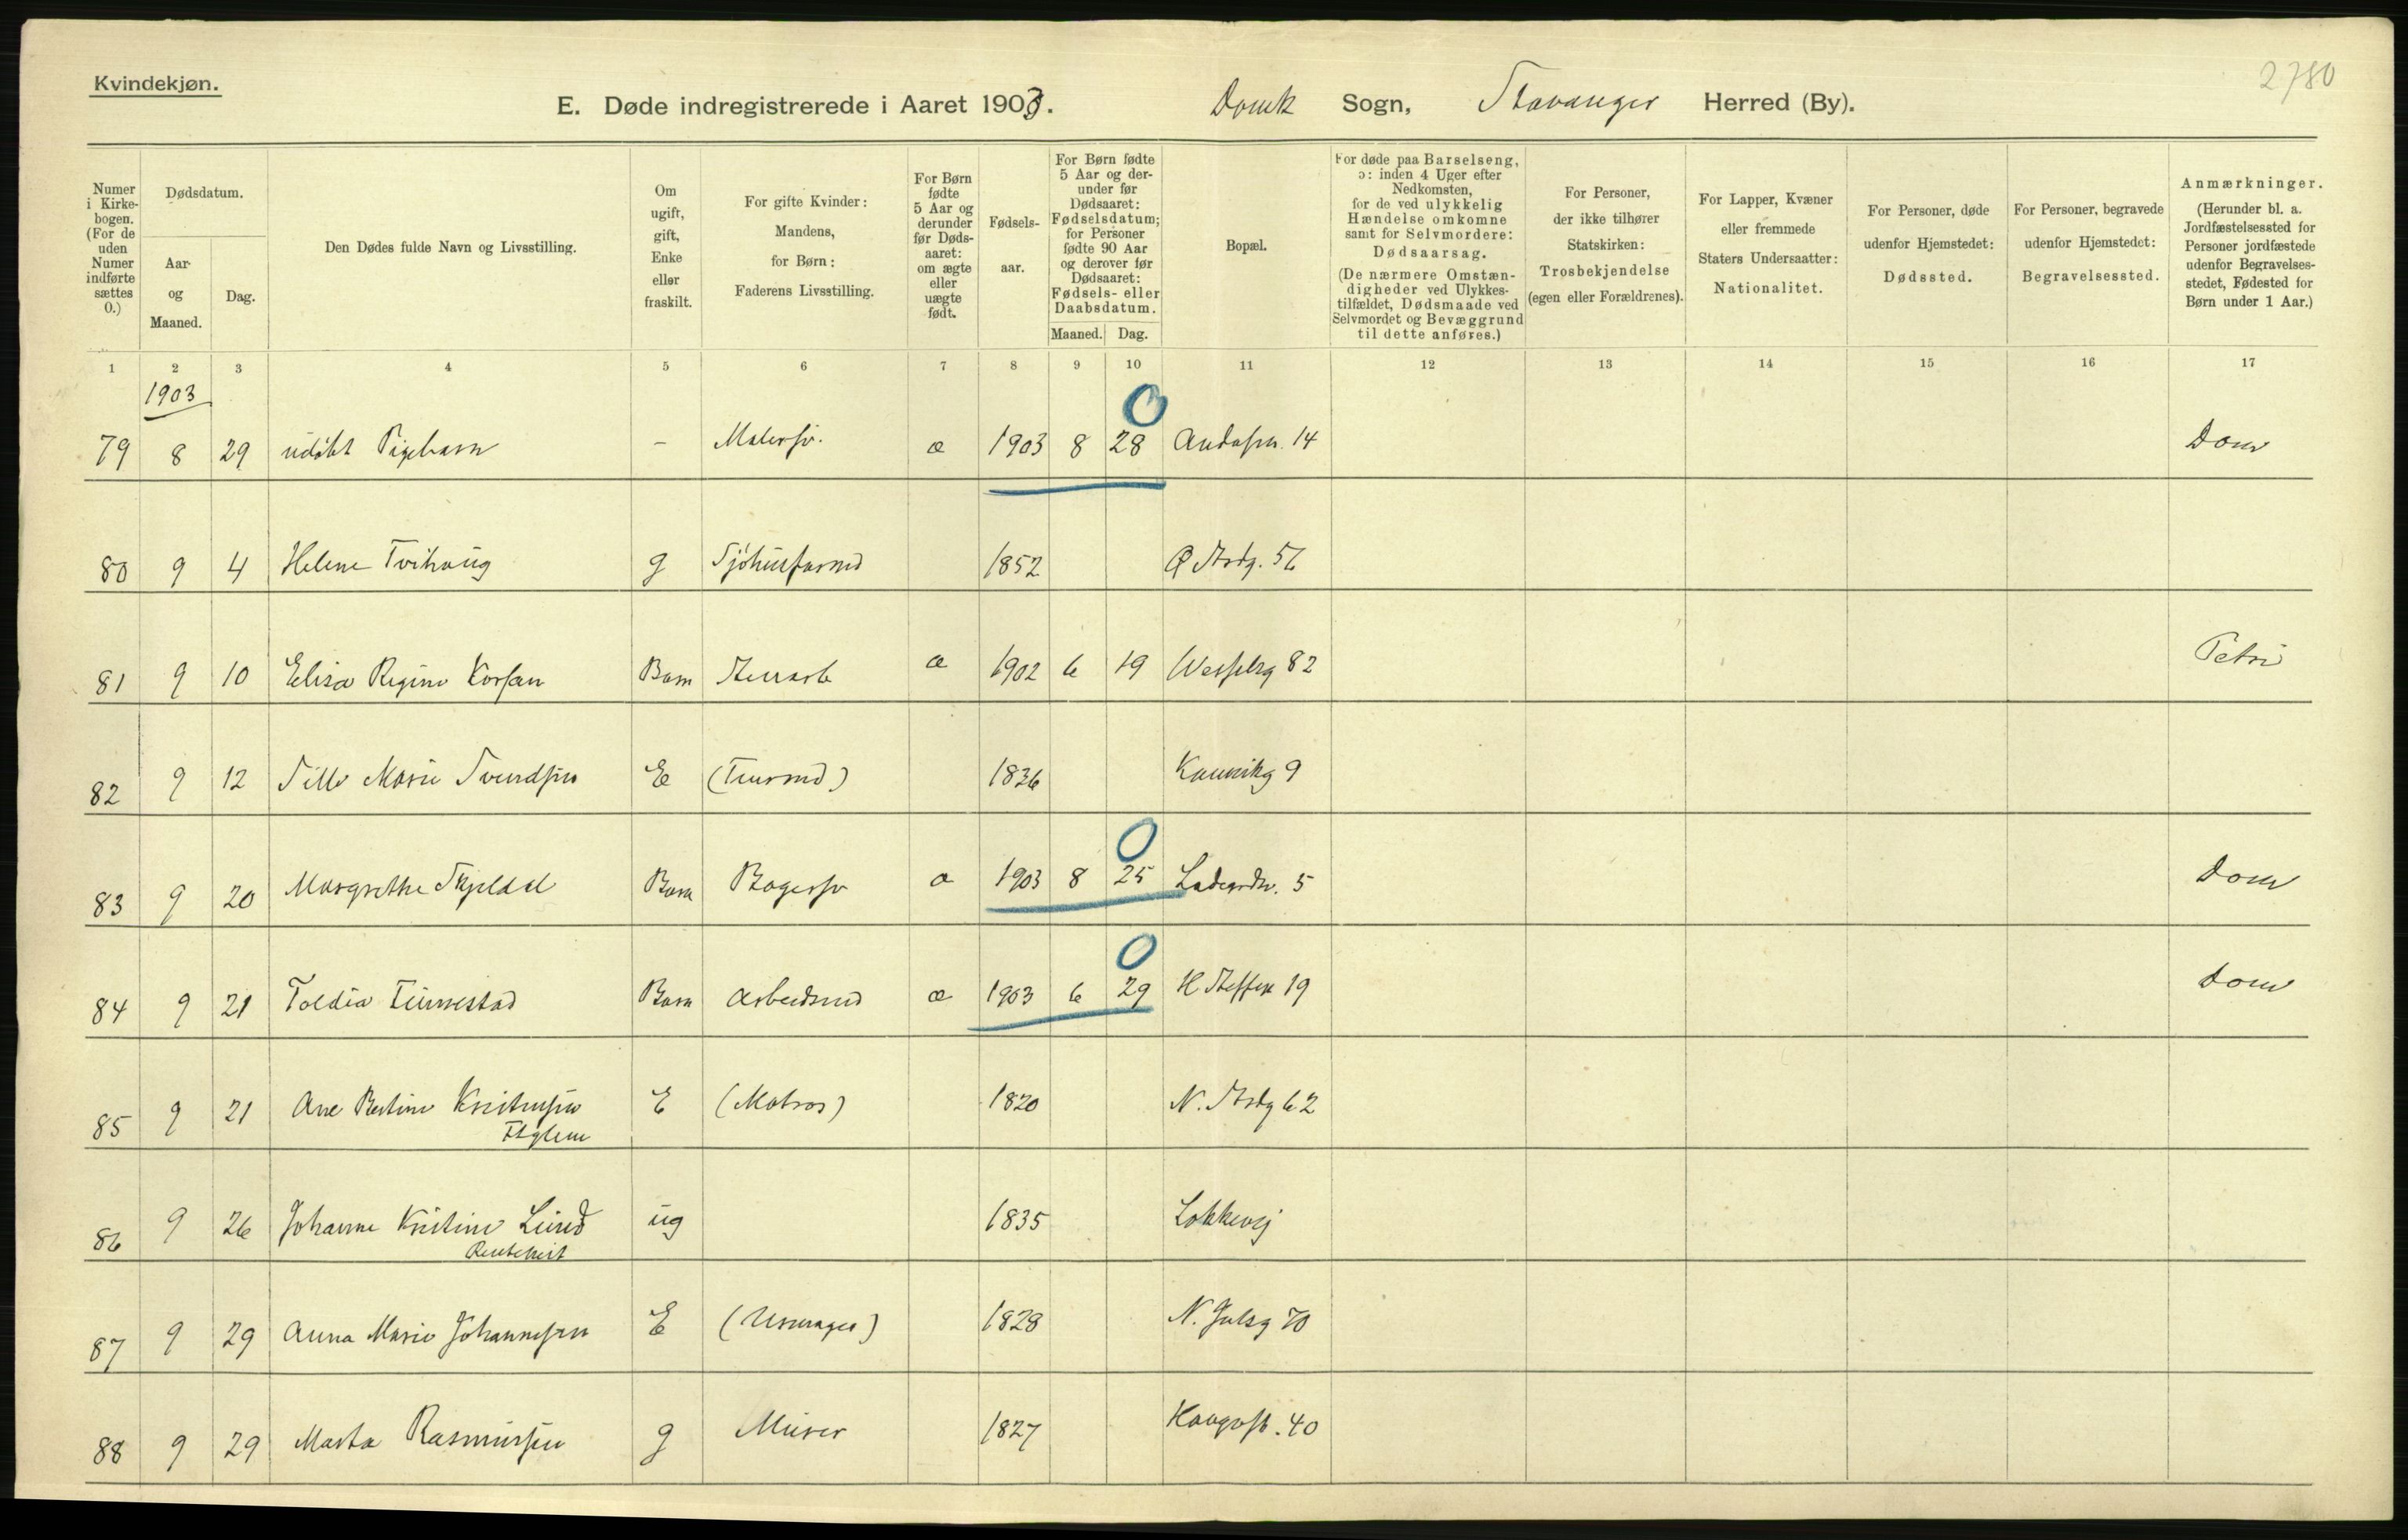 Kvindekjøn.
2780
E. Døde indregistrerede i Aaret 1903. Domk Sogn, Stavanger Herred (By).
Numer i Kirkebogen. (For de uden Numer indførte sættes 0.)
Dødsdatum.
Aar og Maaned.
Dag.
Den Dødes fulde Navn og Livsstilling.
Om ugift, gift, Enke eller fraskilt.
For gifte Kvinder: Mandens, for Børn: Faderens Livsstilling.
For Børn fødte 5 Aar og derunder før Dødsaaret: om ægte eller uægte født.
Fødselsaar.
For Børn fødte 5 Aar og derunder før Dødsaaret: Fødselsdatum; for Personer fødte 90 Aar og derover før Dødsaaret: Fødsels- eller Daabsdatum.
Maaned. Dag.
Bopæl.
For døde paa Barselseng, ɔ: inden 4 Uger efter Nedkomsten, for de ved ulykkelig Hændelse omkomne samt for Selvmordere: Dødsaarsag. (De nærmere Omstændigheder ved Ulykkestilfældet, Dødsmaade ved Selvmordet og Bevæggrund til dette anføres.)
For Personer, der ikke tilhører Statskirken: Trosbekjendelse (egen eller Forældrenes).
For Lapper, Kvæner eller fremmede Staters Undersaatter: Nationalitet.
For Personer, døde udenfor Hjemstedet: Dødssted.
For Personer, begravede udenfor Hjemstedet: Begravelsessted.
Anmærkninger. (Herunder bl. a. Jordfæstelsessted for Personer jordfæstede udenfor Begravelsesstedet, Fødested for Børn under 1 Aar.)
1 2 3 4 5 6 7 8 9 10 11 12 13 14 15 16 17
1903
79 8 29 udøbt Pigebarn - Malersv. æ 1903 8 28 14 Dom
80 9 4 Helene Tvihaug g 1852 Ø Strdg. 56
81 9 10 Elisa Regine Barn æ 1902 6 19 Wesselsg 82 Petri
82 9 12 Marie Svendsen E (Tømmd) 1836 Kannikg 9
83 9 20 Margrethe Skjeldal Barn Bagersv æ 1903 8 25 Ladegrdv. 5 Dom
84 9 21 Toldia Finnestad Barn Arbeidsmd æ 1903 6 29 H Steffen 19 Dom
85 9 21 Ane Bertine Kristensen E (Matros) 1820 N. Strdg 62
86 9 26 Johanne Kristine Lund ug 1835 Løkkevej
Rentenist
87 9 29 Anna Marie Johannesen E (Urmager) 1828 N. Holsg 70
88 9 29 Marta Rasmussen g Murer 1827 Haugvst. 40